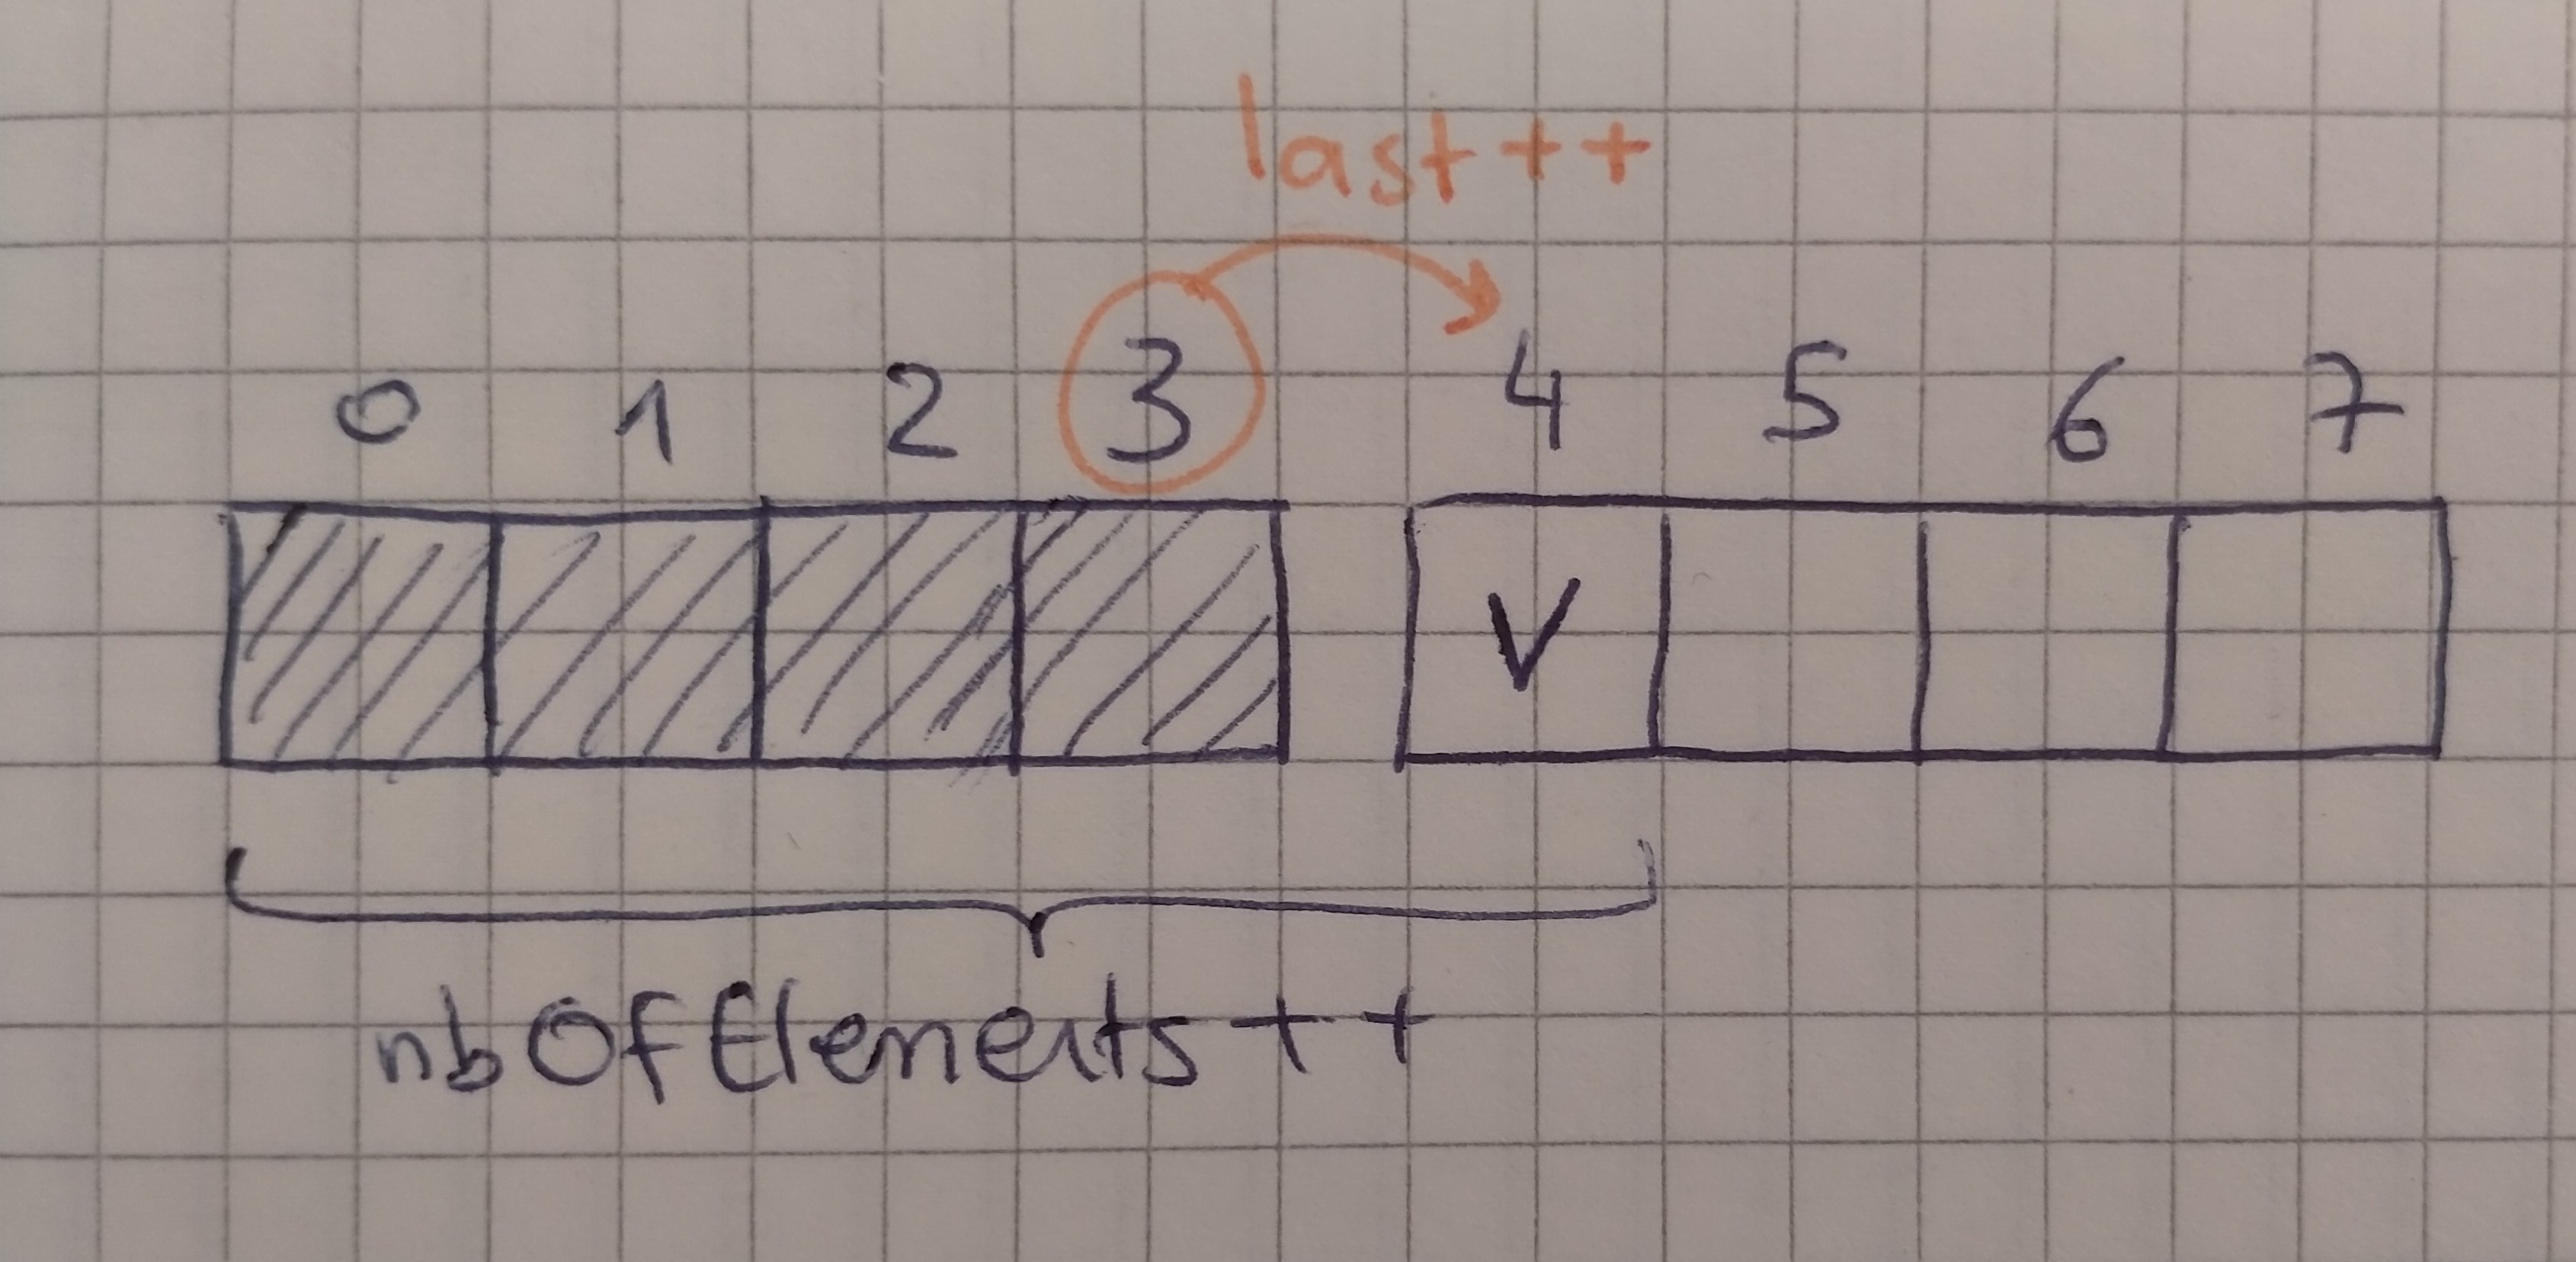 last++
0 1 2 3 4 5 6 7
V
nbOfElements++